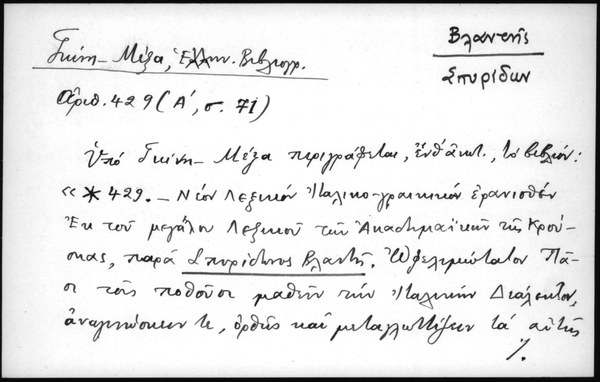 Βλαντής
Σπυρίδων
Γκίνη - Μέξα, Ἑλλην. Βιβλιογρ.
Ἀριθ. 429 (Α΄, σ. 71)
Ὑπό Γκίνη - Μέξα περιγράφεται, ἔνθ᾽ἀνωτ., τὸ βιβλίον:
«*429. - Νέον Λεξικόν Ἰταλικο-γραικικόν ἐρανισθέν
Ἐκ τοῦ μεγάλου Λεξικοῦ τῶν Ἀκαδημαϊκῶν τῆς Κρού-
σκας, παρά Σπυρίδωνος Βλαντῆ. Ὠφελιμώτατον Πᾶ-
σι τοῖς ποθοῦσι μαθεῖν τήν Ἰταλικήν Διάλεκτον,
ἀναγινώσκειν τε, ὀρθῶς καί μεταγλωττίζειν τά αὐτῆς
./.